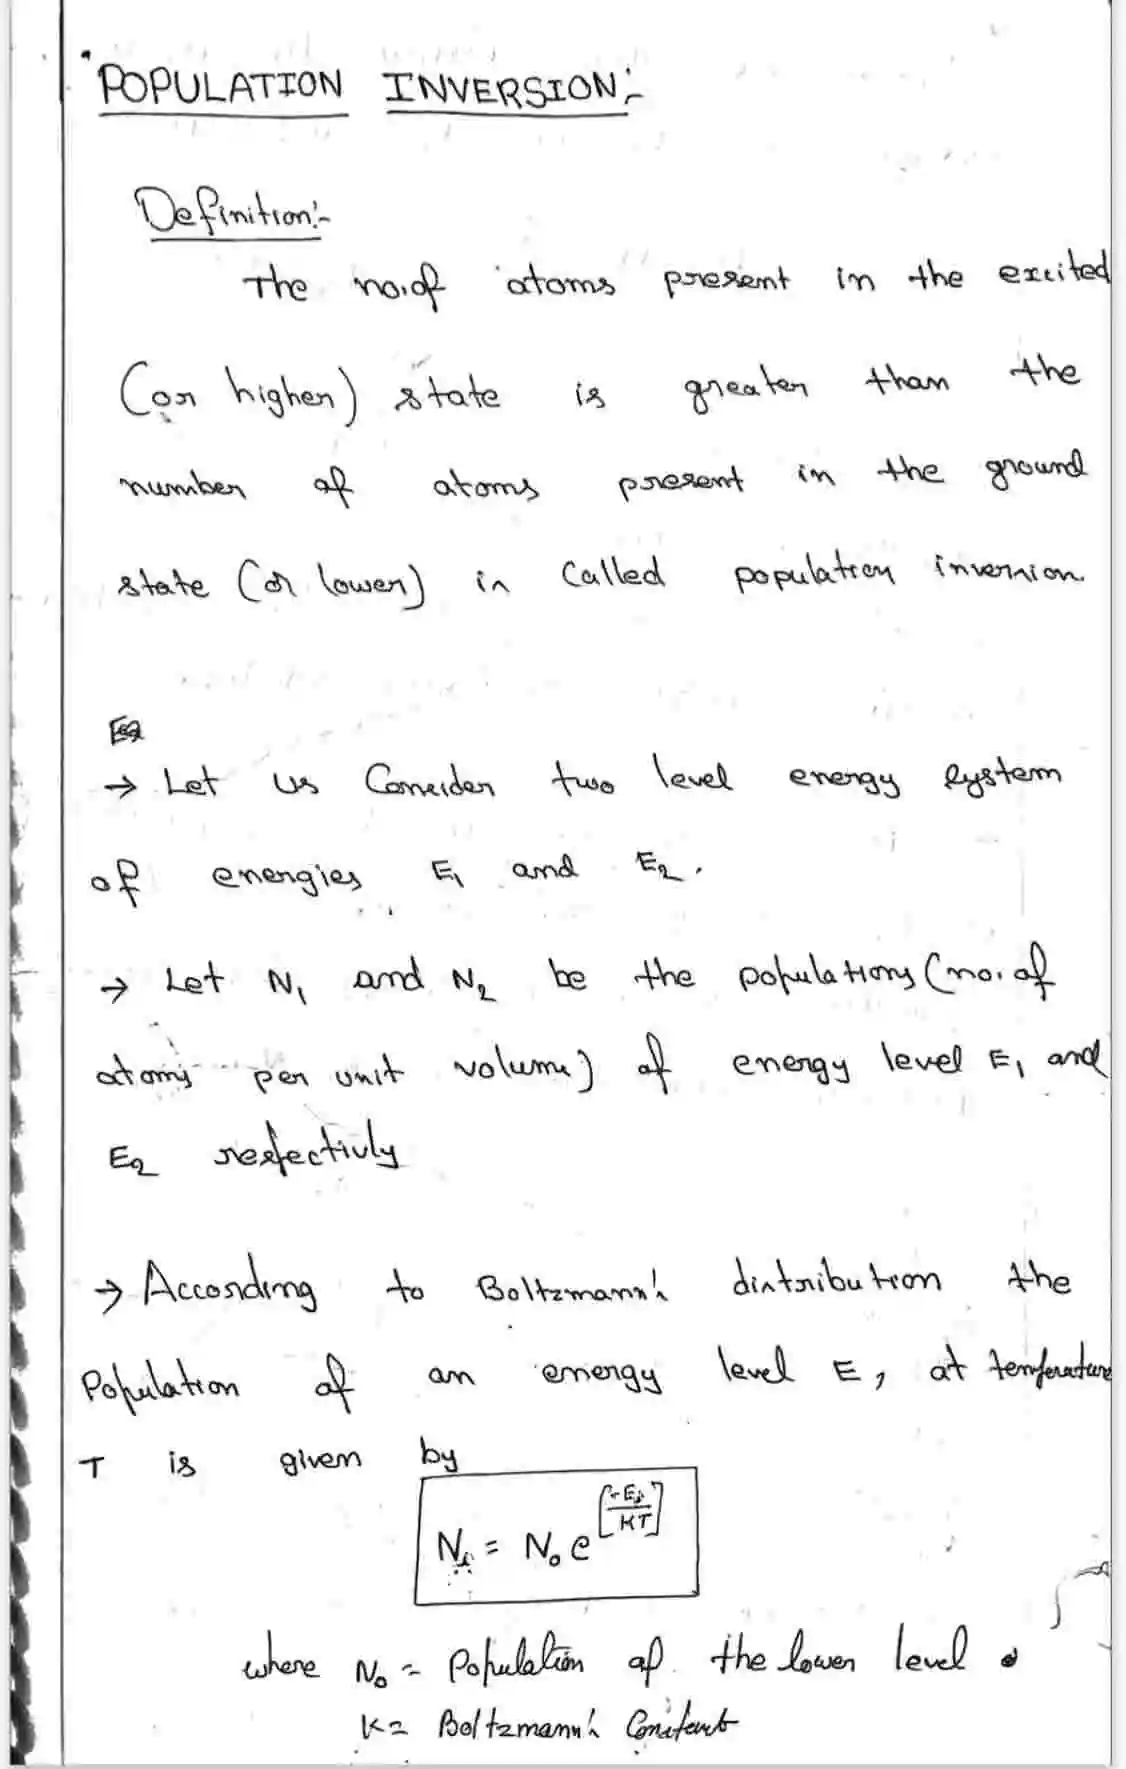 POPULATION INVERSION:-
Definition:-
The no.of atoms present in the excited
(or higher) state is greater than the
number of atoms present in the ground
state (or lower) is called population inversion.
→ Let us Consider two level energy system
of energies E₁ and E₂.
→ Let N₁ and N₂ be the populations (no. of
atoms per unit volume) of energy level E₁ and
E₂ respectivly
→ According to Boltzmann's distribution the
Population of an energy level E, at temperature
T is given by
Nᵢ = N₀ e^[-Eᵢ/KT]
where N₀ = Population of the lower level
K = Boltzmann's Constant